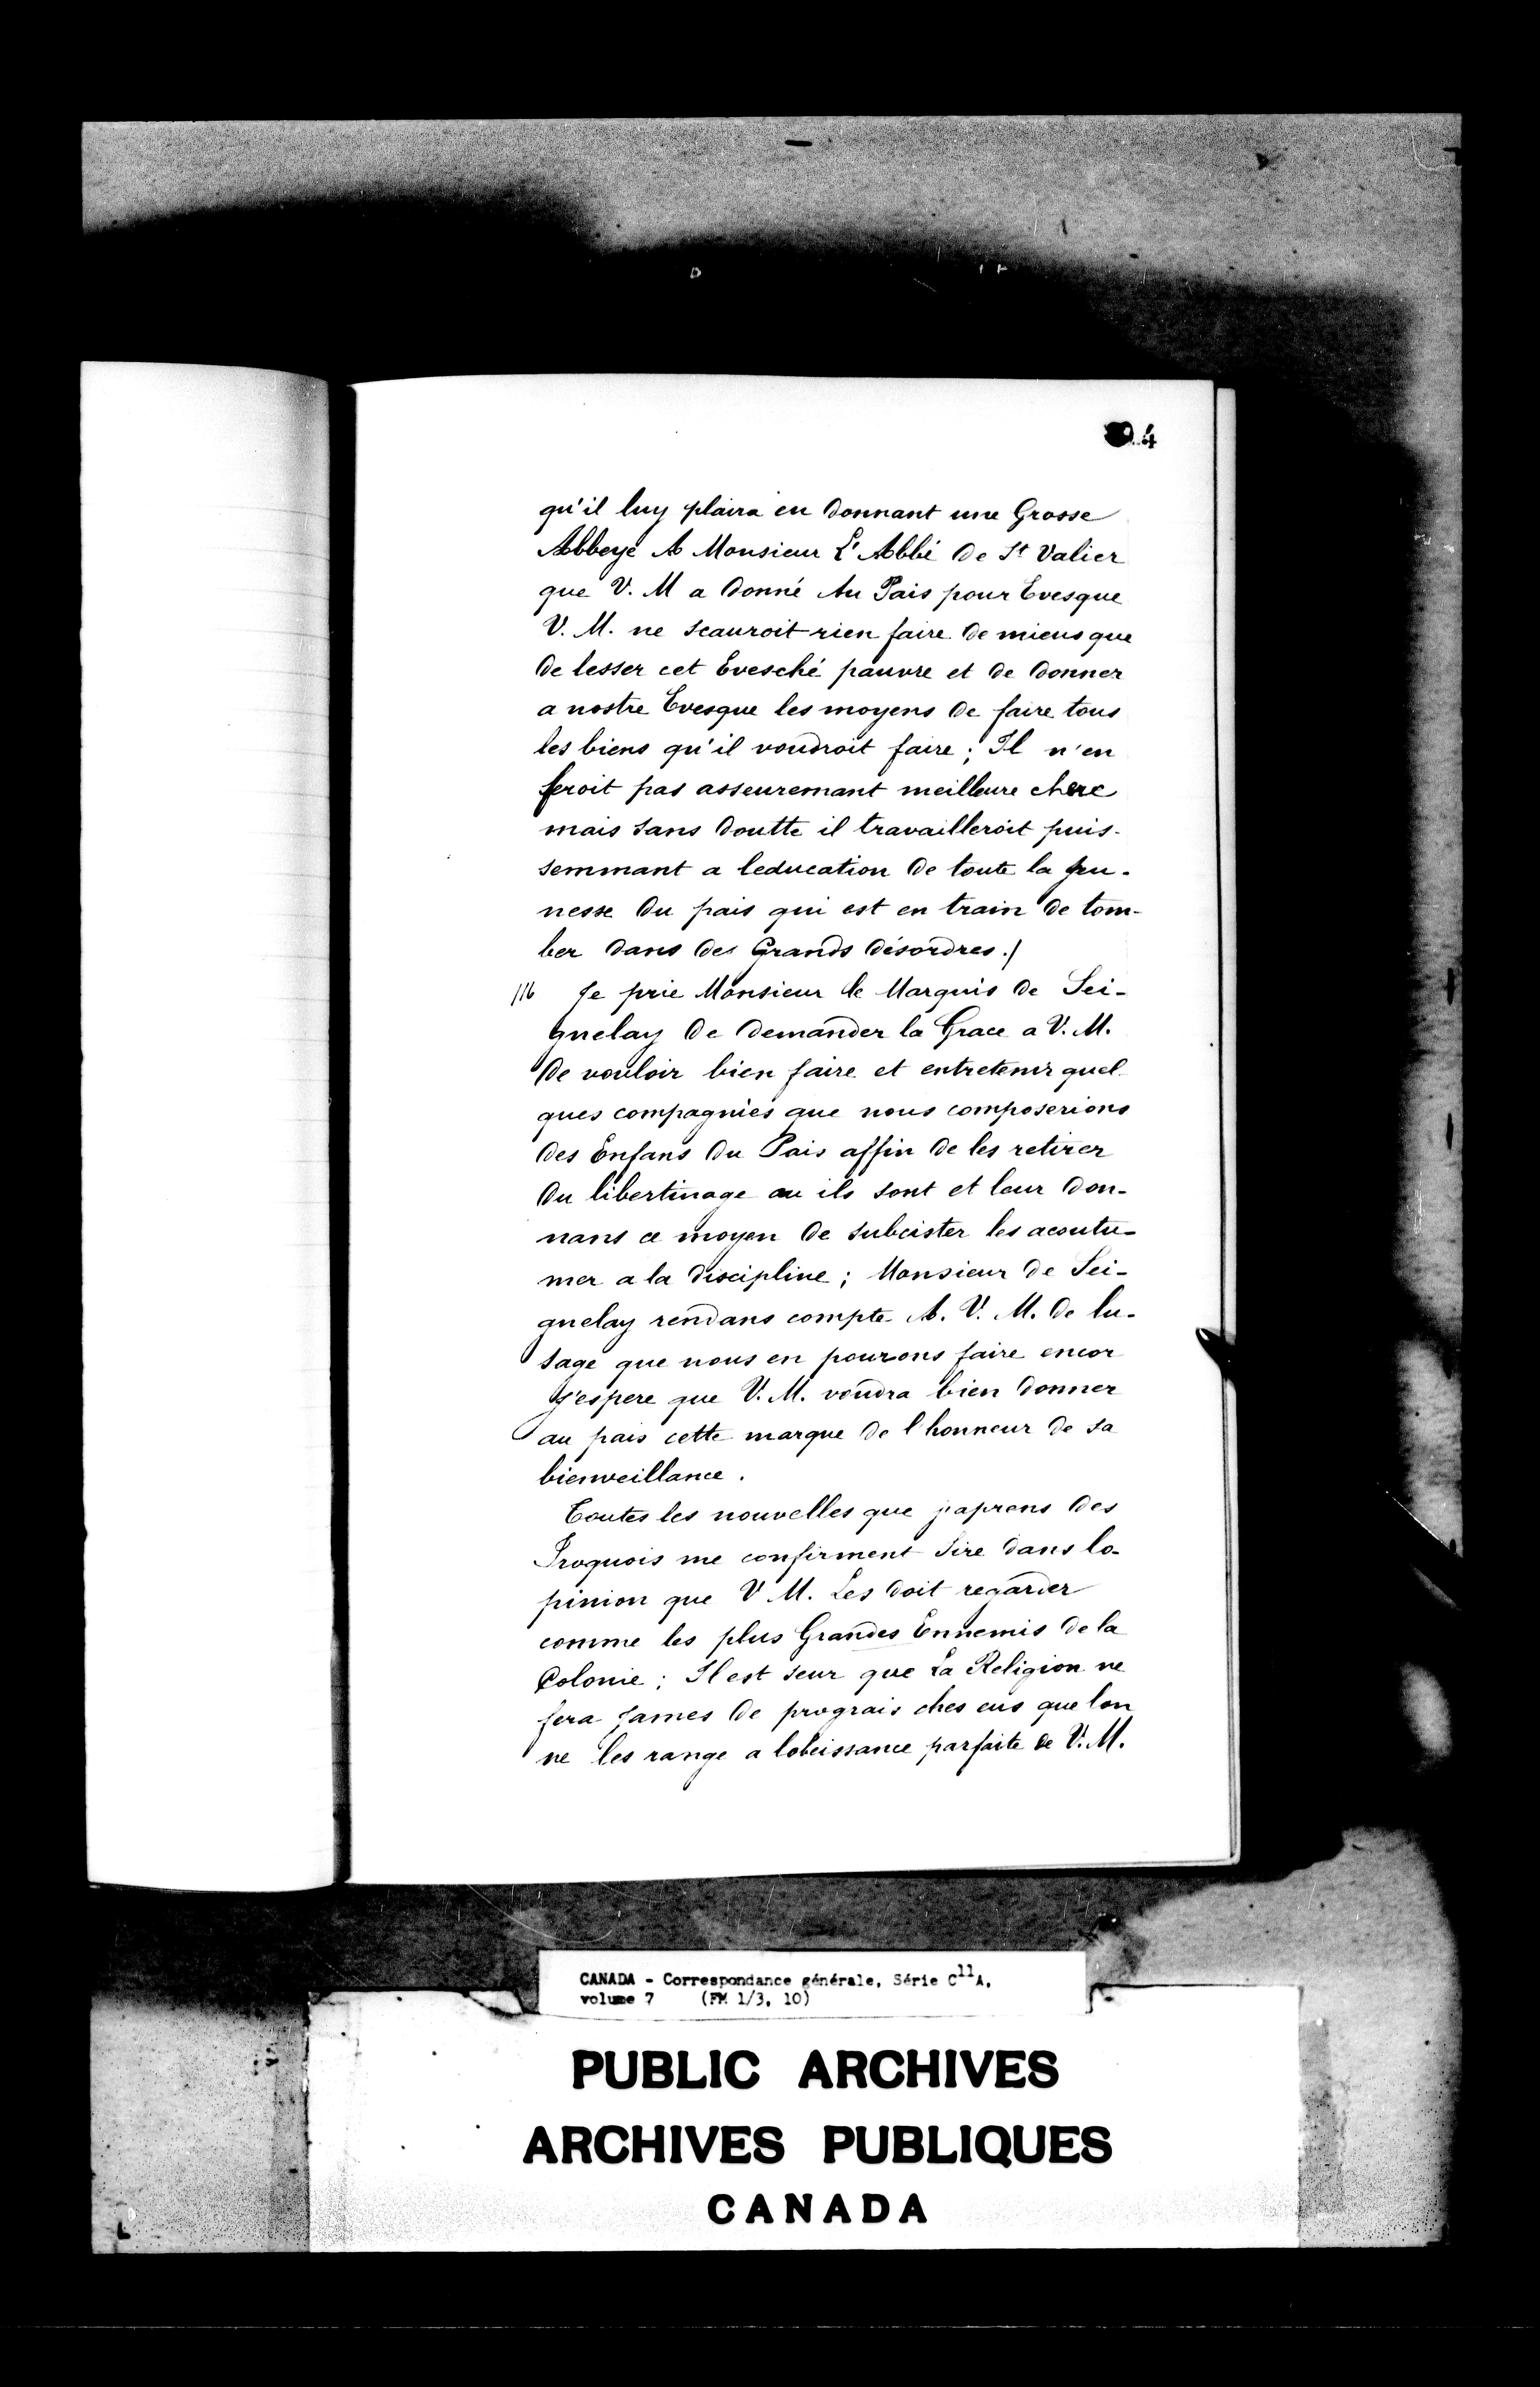 4
qu'il luy plaira en donnant une Grosse
Abbeye A Monsieur L'Abbé de St Valier
que V. M a donné Au Pais pour Evesque
V. M. ne scauroit rien faire de mieus que
de lesser cet Evesché pauvre et de donner
a nostre Evesque les moyens de faire tous
les biens qu'il voudroit faire ; Il n'en
feroit pas asseuremant meilleure chere
mais sans doutte il travailleroit puis-
semmant a leducation de toute la jeu-
nesse du pais qui est en train de tom-
ber dans des Grands désordres ./
116 Je prie Monsieur le Marquis de Sei-
gnelay de demander la Grace a V. M.
de vouloir bien faire et entretenir quel-
ques compagnies que nous composerions
des Enfans du Pais affin de les retirer
du libertinage ou ils sont et leur don-
nans ce moyen de subcister les acoutu-
mer a la discipline ; Monsieur de Sei-
gnelay rendans compte A. V. M. de lu-
sage que nous en pourons faire encor
j'espere que V. M. voudra bien donner
au pais cette marque de l honneur de sa
bienveillance .
Toutes les nouvelles que j'aprens des
Iroquois me confirment Sire dans lo-
pinion que V M. Les doit regarder
comme les plus Grandes Ennemis de la
Colonie ; Il est seur que La Religion ne
fera James de prograis ches eus que lon
ne les range a lobeissance parfaite de V. M.
CANADA - Correspondance générale, Série C11A,
volume 7 (FM 1/3, 10)
PUBLIC ARCHIVES
ARCHIVES PUBLIQUES
CANADA